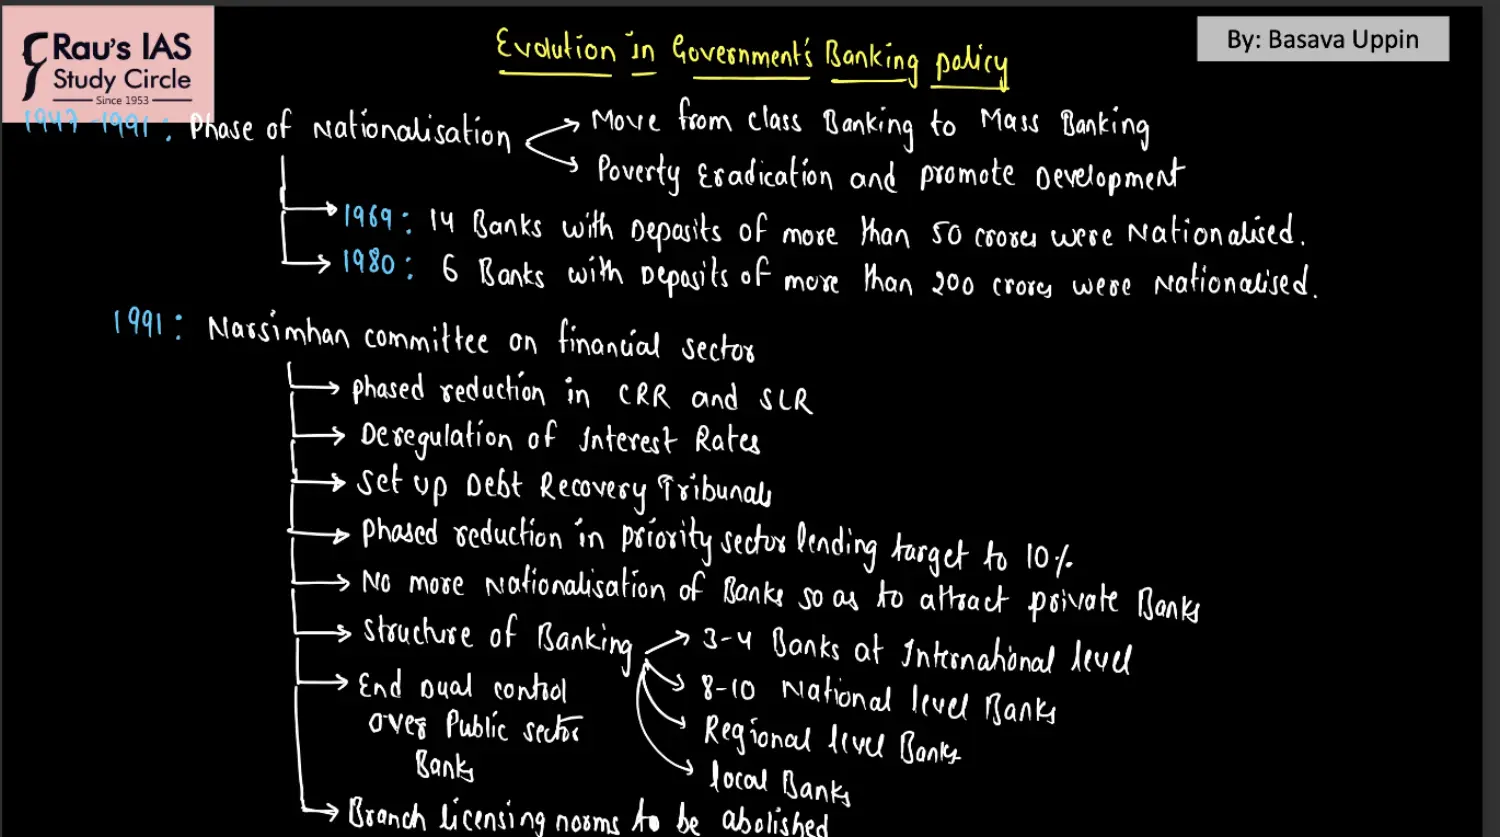 Rau's IAS
Study Circle
Since 1953
By: Basava Uppin
Evolution in Government's Banking policy
1947-1991: Phase of Nationalisation
Move from class Banking to Mass Banking
Poverty Eradication and promote Development
1969: 14 Banks with Deposits of more than 50 crores were Nationalised.
1980: 6 Banks with Deposits of more than 200 crores were Nationalised.
1991: Narsimhan committee on financial sector
phased reduction in CRR and SLR
Deregulation of Interest Rates
Set up Debt Recovery Tribunals
Phased reduction in priority sector lending target to 10%
No more Nationalisation of Banks so as to attract private Banks
Structure of Banking
3-4 Banks at International level
8-10 National level Banks
Regional level Banks
local Banks
End Dual control
over Public sector
Banks
Branch licensing norms to be abolished